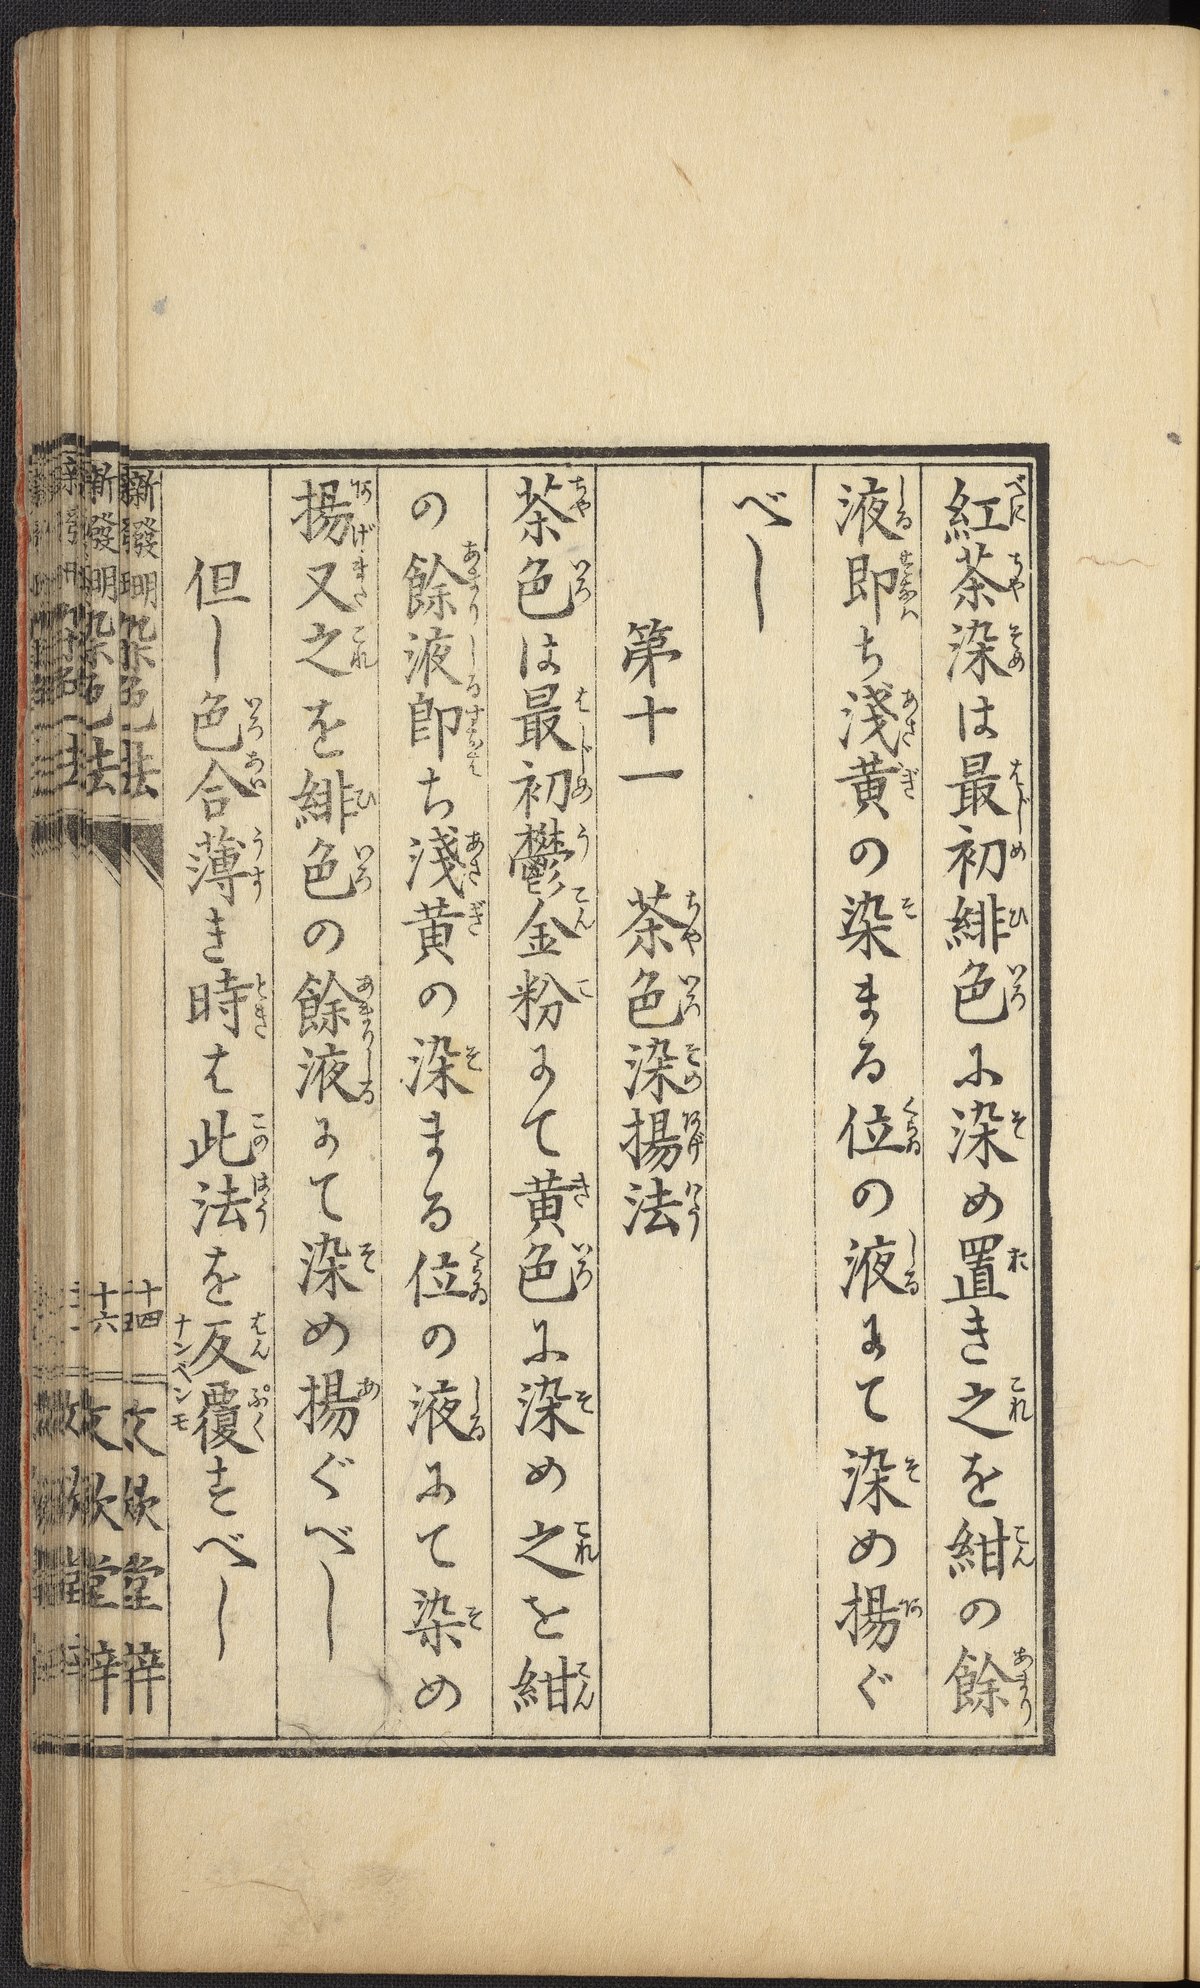 紅茶染は最初緋色に染め置き之を紺の餘
液即ち淺黄の染まる位の液にて染め揚ぐ
べし
第十一 茶色染揚法
茶色は最初鬱金粉にて黄色に染め之を紺
の餘液即ち淺黄の染まる位の液にて染め
揚又之を緋色の餘液にて染め揚ぐべし
但し色合薄き時は此法を反覆すべし
ナンベンモ
新發明染色法 十四 文欽堂梓
新發明染色法 十六 文欽堂梓